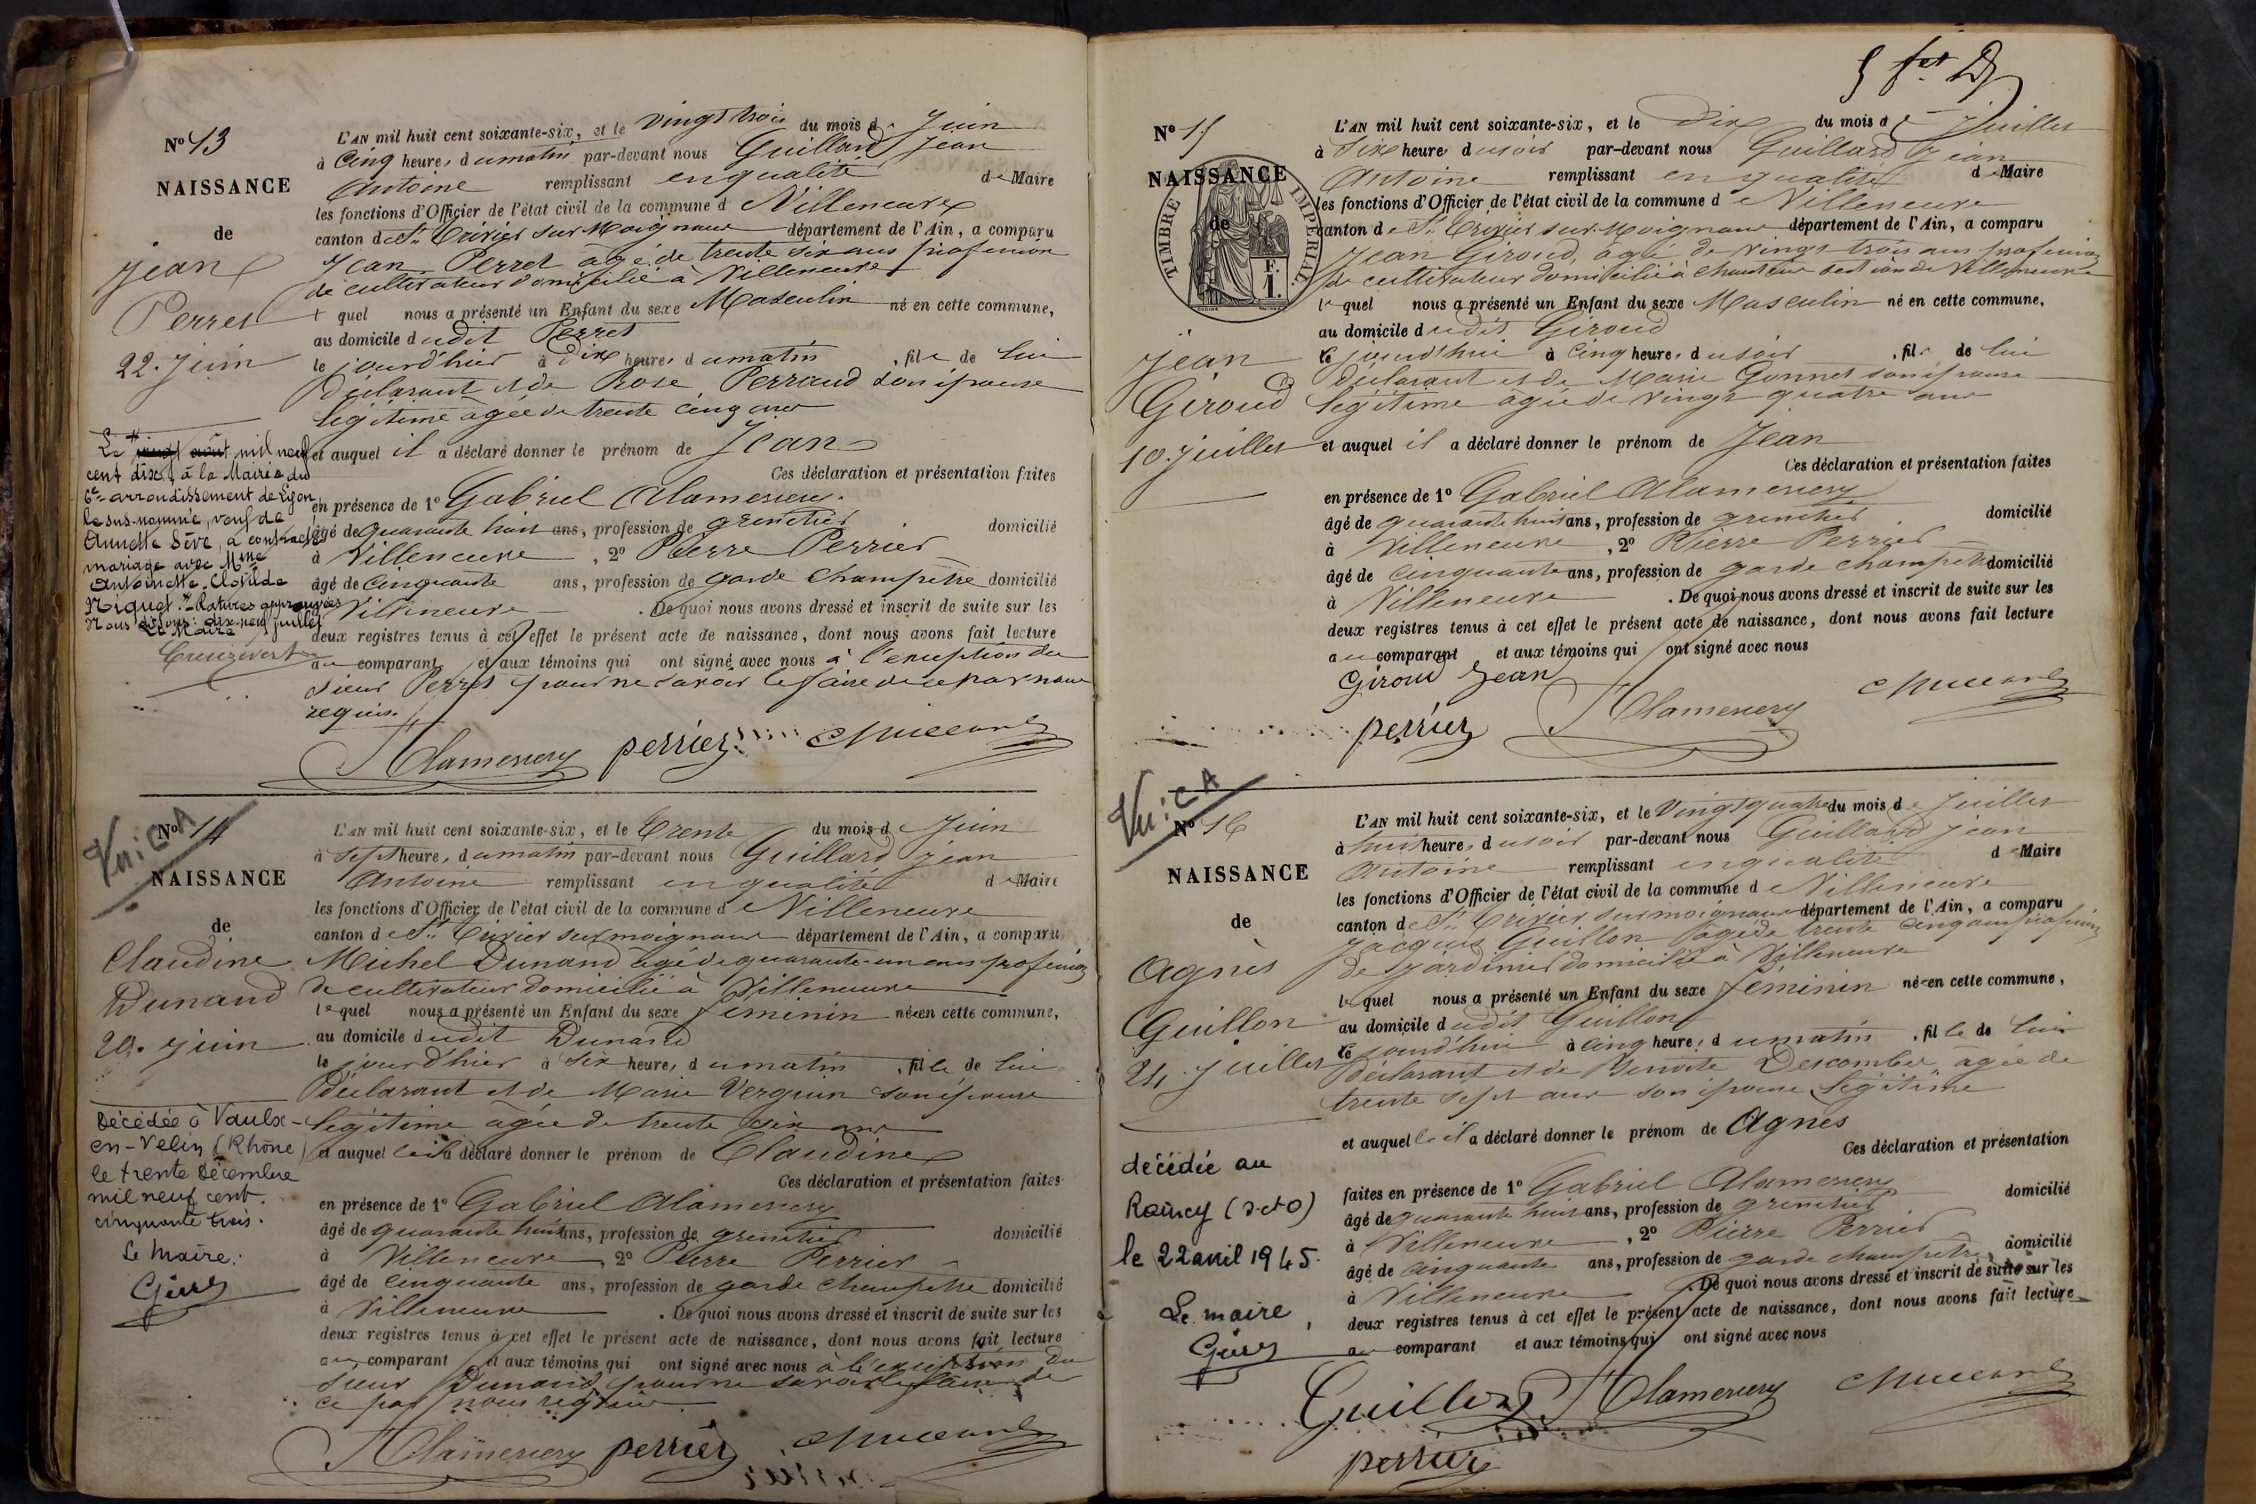 No 13
NAISSANCE
de
Jean
Perret
22. Juin
L'AN mil huit cent soixante-six, et le vingt trois du mois de Juin
à cinq heures du matin par-devant nous Guillard Jean
Antoine remplissant en qualité de Maire
les fonctions d'Officier de l'état civil de la commune de Villeneuve
canton de St Trivier sur Moignans département de l'Ain, a comparu
Jean Perret âgé de trente six ans profession
de cultivateur domicilié à Villeneuve
lequel nous a présenté un Enfant du sexe Masculin né en cette commune,
au domicile dudit Perret
le jour d'hier à dix heures du matin, fils de lui
déclarant et de Rose Perraud son épouse
légitime âgée de trente cinq ans
et auquel il a déclaré donner le prénom de Jean
Ces déclaration et présentation faites
en présence de 1o Gabriel Alamercery
âgé de quarante huit ans, profession de grenetier domicilié
à Villeneuve, 2o Pierre Perrier
âgé de cinquante ans, profession de garde champêtre domicilié
à Villeneuve. De quoi nous avons dressé et inscrit de suite sur les
deux registres tenus à cet effet le présent acte de naissance, dont nous avons fait lecture
au comparant et aux témoins qui ont signé avec nous à l'exception du
sieur Perret pour ne savoir le faire de ce par nous
requis.
Alamercery perrier
Le vingt août mil neuf
cent dix, à la Mairie du
6e arrondissement de Lyon,
le sus-nommé, veuf de
Annette Sève, a contracté
mariage avec Mme
Antoinette Clotilde
Niquet. Ratures approuvées
Nous disons: dix-neuf juillet
Le Maire
No 14
Vu: CA
NAISSANCE
de
Claudine
Dunand
29. Juin
L'AN mil huit cent soixante-six, et le Trente du mois de Juin
à sept heures du matin par-devant nous Guillard Jean
Antoine remplissant en qualité de Maire
les fonctions d'Officier de l'état civil de la commune de Villeneuve
canton de St Trivier sur moignans département de l'Ain, a comparu
Michel Dunand âgé de quarante-un ans profession
de cultivateur domicilié à Villeneuve
lequel nous a présenté un Enfant du sexe féminin née en cette commune,
au domicile dudit Dunand
le jour d'hier à six heures du matin, fille de lui
déclarant et de Marie Verguin son épouse
légitime âgée de trente six ans
et auquel il a déclaré donner le prénom de Claudine
Ces déclaration et présentation faites
en présence de 1o Gabriel Alamercery
âgé de quarante huit ans, profession de grenetier domicilié
à Villeneuve 2o Pierre Perrier
âgé de cinquante ans, profession de garde champêtre domicilié
à Villeneuve. De quoi nous avons dressé et inscrit de suite sur les
deux registres tenus à cet effet le présent acte de naissance, dont nous avons fait lecture
au comparant et aux témoins qui ont signé avec nous à l'exception du
sieur Dunand pour ne savoir le faire de
ce par nous requis
Alamercery perrier
Décédée à Vaulx-
en-Velin (Rhône)
le trente Décembre
mil neuf cent
cinquante trois.
Le Maire:
No 15
TIMBRE IMPÉRIAL
NAISSANCE
de
Jean
Giroud
10. Juillet
L'AN mil huit cent soixante-six, et le Dix du mois de Juillet
à Six heures du soir par-devant nous Guillard Jean
Antoine remplissant en qualité de Maire
les fonctions d'Officier de l'état civil de la commune de Villeneuve
canton de St Trivier sur Moignans département de l'Ain, a comparu
Jean Giroud, âgé de vingt trois ans profession
de cultivateur domicilié à Chanteins section de Villeneuve
lequel nous a présenté un Enfant du sexe Masculin né en cette commune,
au domicile dudit Giroud
le jourd'hui à cinq heures du soir, fils de lui
déclarant et de Marie Gonnet son épouse
légitime âgée de vingt quatre ans
et auquel il a déclaré donner le prénom de Jean
Ces déclaration et présentation faites
en présence de 1o Gabriel Alamercery
âgé de quarante huit ans, profession de grenetier domicilié
à Villeneuve, 2o Pierre Perrier
âgé de cinquante ans, profession de garde champêtre domicilié
à Villeneuve. De quoi nous avons dressé et inscrit de suite sur les
deux registres tenus à cet effet le présent acte de naissance, dont nous avons fait lecture
au comparant et aux témoins qui ont signé avec nous
Giroud Jean
perrier Alamercery
Vu: CA
No 16
NAISSANCE
de
Agnès
Guillon
24. Juillet
L'AN mil huit cent soixante-six, et le Vingt quatre du mois de Juillet
à huit heures du soir par-devant nous Guillard Jean
Antoine remplissant en qualité de Maire
les fonctions d'Officier de l'état civil de la commune de Villeneuve
canton de St Trivier sur moignans département de l'Ain, a comparu
Jacques Guillon âgé de trente cinq ans profession
de jardinier domicilié à Villeneuve
lequel nous a présenté un Enfant du sexe féminin née en cette commune,
au domicile dudit Guillon
le jourd'hui à cinq heures du matin, fille de lui
déclarant et de Benoite Descombes agée de
trente sept ans son épouse légitime
et auquel il a déclaré donner le prénom de Agnès
Ces déclaration et présentation
faites en présence de 1o Gabriel Alamercery
âgé de quarante huit ans, profession de grenetier domicilié
à Villeneuve, 2o Pierre Perrier
âgé de cinquante ans, profession de garde champêtre, domicilié
à Villeneuve. De quoi nous avons dressé et inscrit de suite sur les
deux registres tenus à cet effet le présent acte de naissance, dont nous avons fait lecture
au comparant et aux témoins qui ont signé avec nous
Guillon Alamercery
perrier
décédée au
Raincy (S-et-O)
le 22 avril 1945.
Le maire,